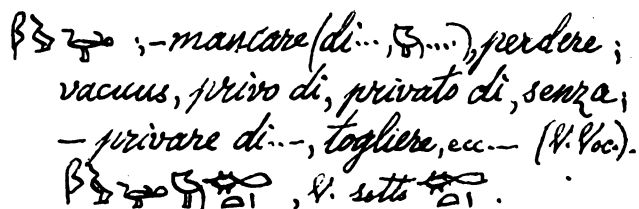 ;-mancare (di..., ....), perdere;
vacuus, privo di, privato di, senza;
– privare di..-, togliere, ecc.— (V. Voc.).
, V. sotto .